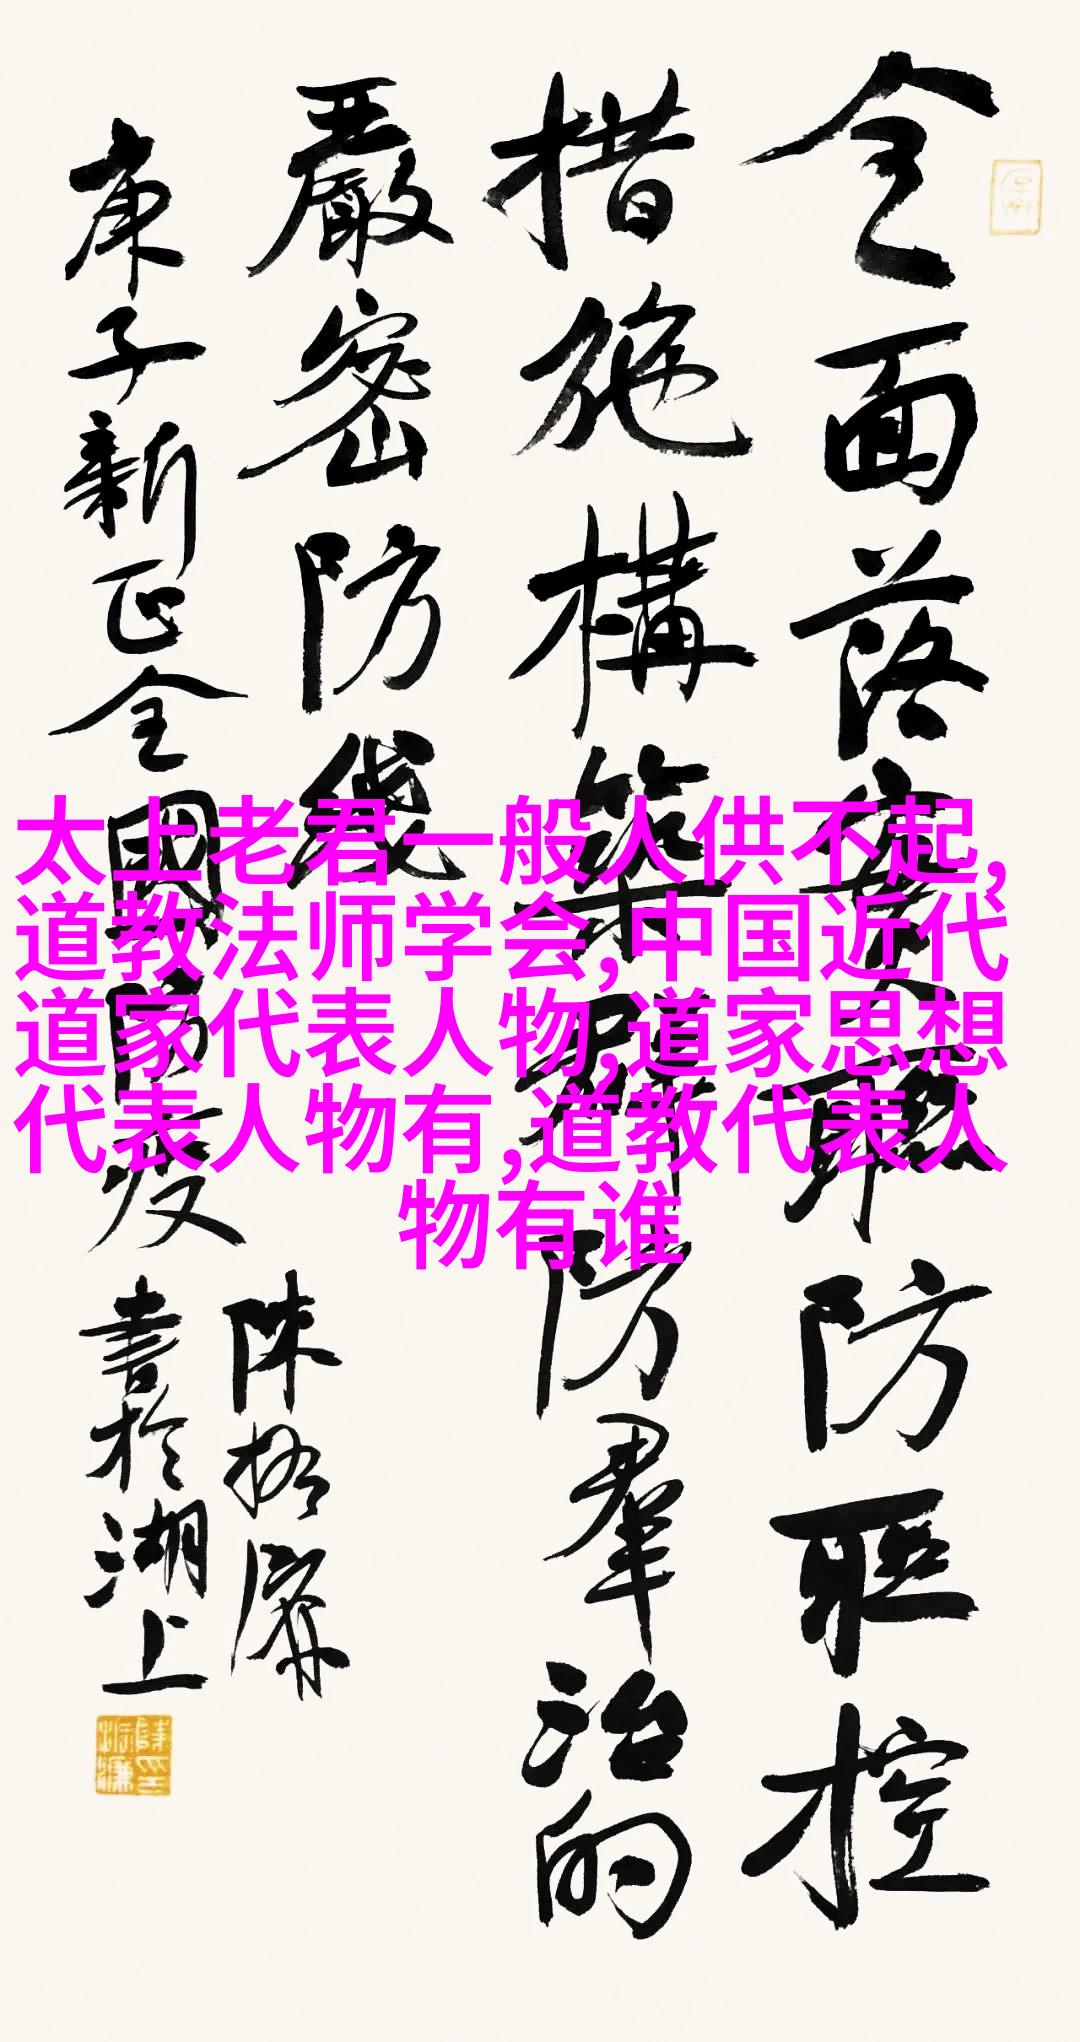 全面落實聯防聯控
措施構築群防羣治的
嚴密防線
庚子新正全國防疫
陳振濂
書於湖上
太上老君一般人供不起,
道教法师学会,中国近代
道家代表人物,道家思想
代表人物有,道教代表人
物有谁